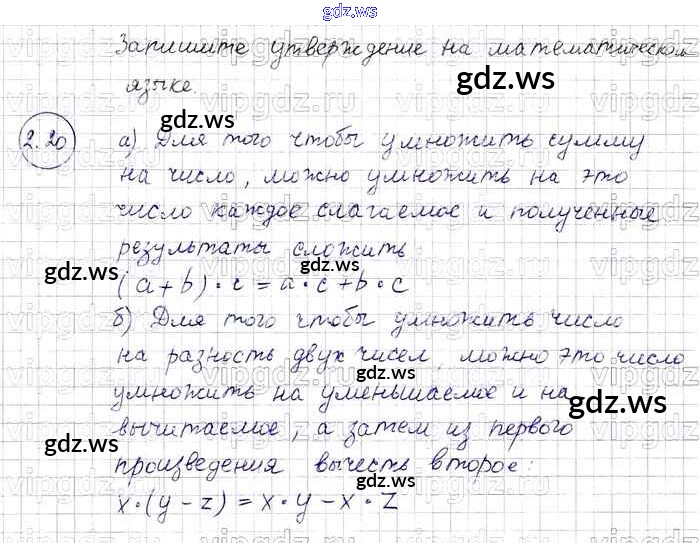 gdz.ws
Запишите утверждение на математическом
языке.
2.20
а) Для того чтобы умножить сумму
на число, можно умножить на это
число каждое слагаемое и полученные
результаты сложить:
(a+b)·c=a·c+b·c
б) Для того чтобы умножить число
на разность двух чисел, можно это число
умножить на уменьшаемое и на
вычитаемое, а затем из первого
произведения вычесть второе:
x·(y-z)=x·y-x·z
gdz.ws
gdz.ws
gdz.ws
gdz.ws
gdz.ws
gdz.ws
gdz.ws